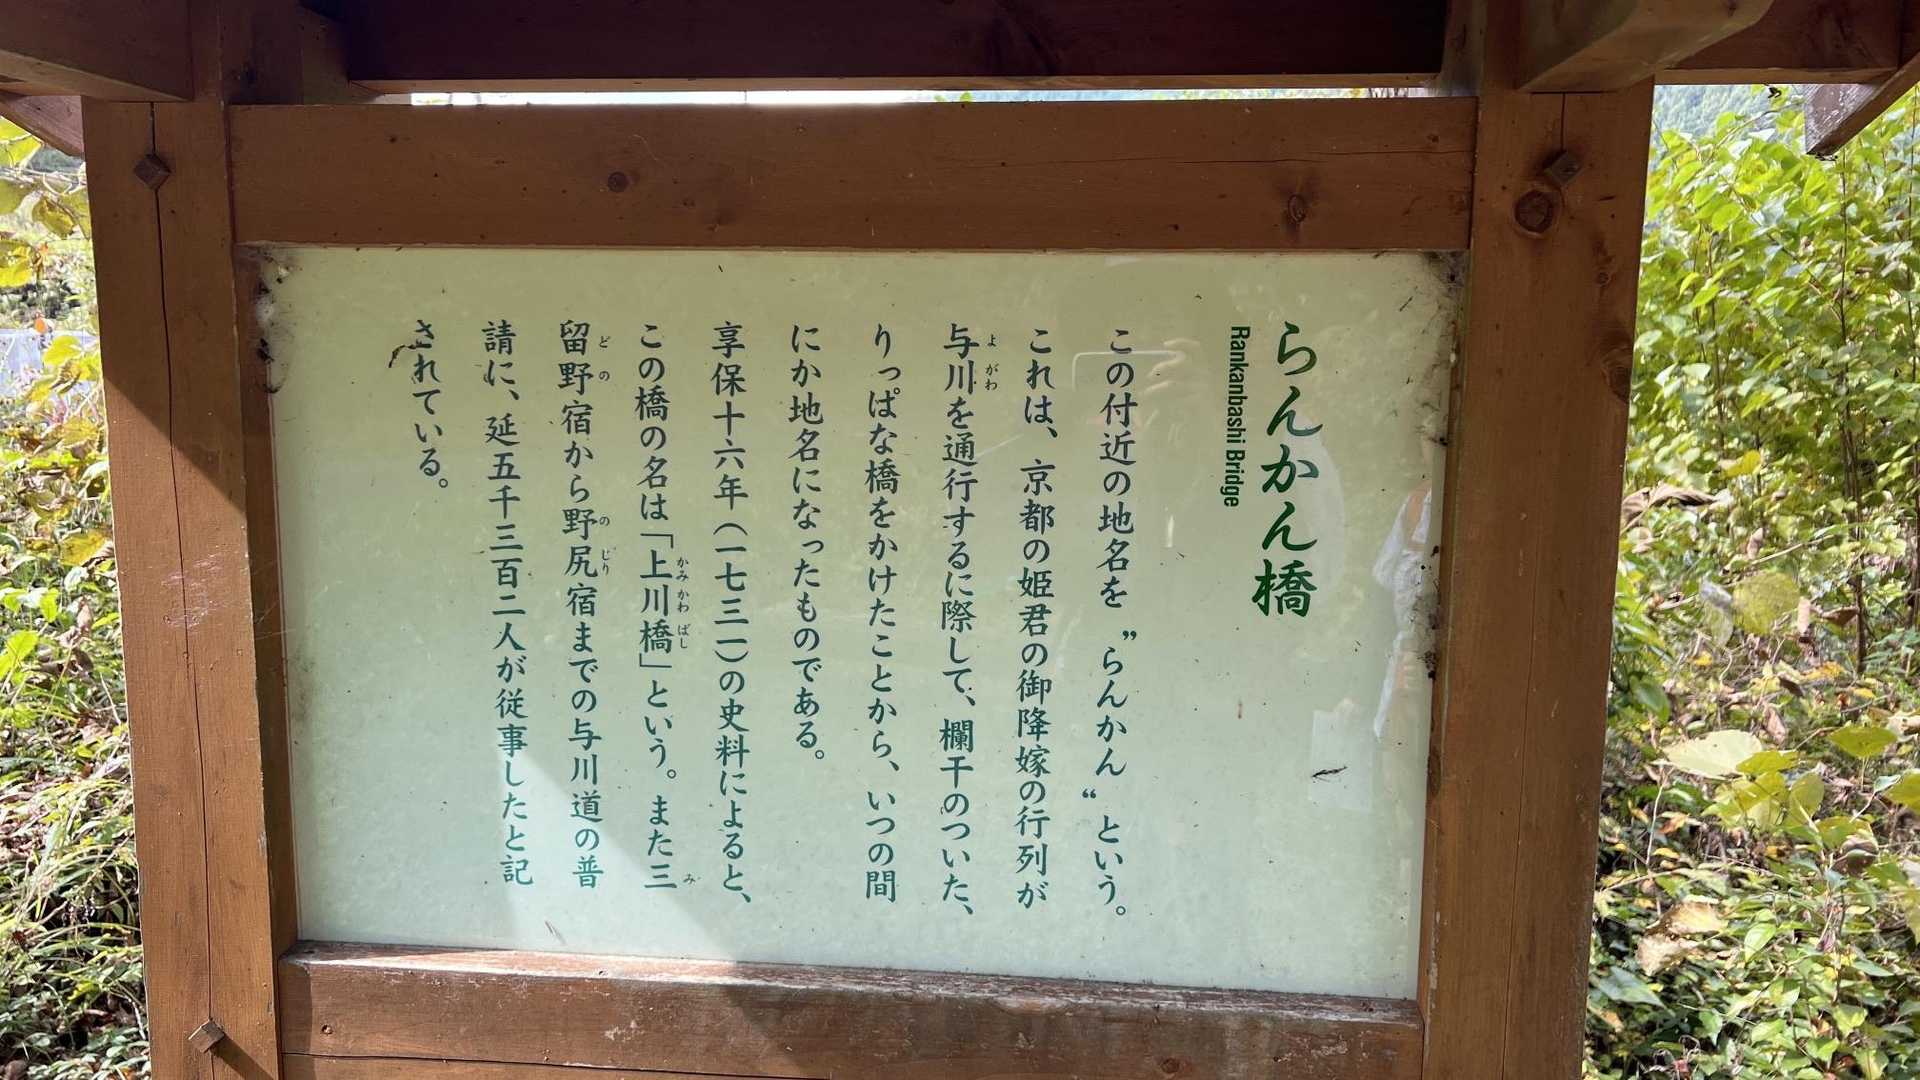 らんかん橋
Rankanbashi Bridge
この付近の地名を〝らんかん〟という。
これは、京都の姫君の御降嫁の行列が
与川を通行するに際して、欄干のついた、
よがわ
りっぱな橋をかけたことから、いつの間
にか地名になったものである。
享保十六年(一七三一)の史料によると、
この橋の名は「上川橋」という。また三
かみかわばし
み
留野宿から野尻宿までの与川道の普
どの
のじり
請に、延五千三百二人が従事したと記
されている。